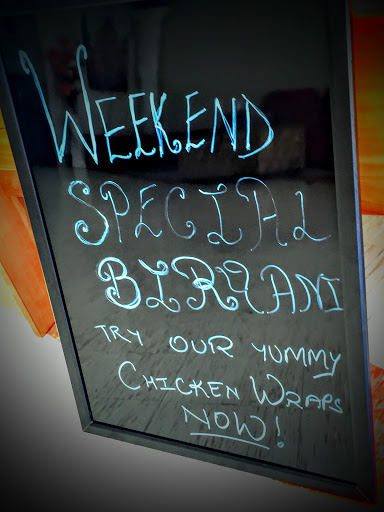 WEEKEND
SPECIAL
BIRYANI
TRY OUR YUMMY
CHICKEN WRAPS
NOW!